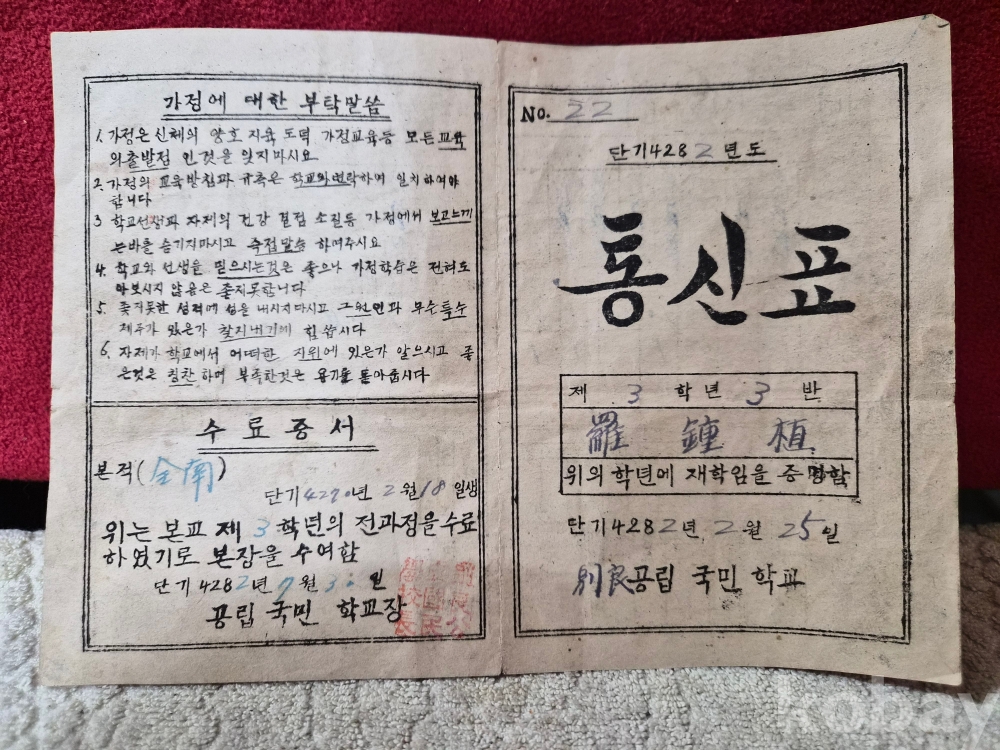 가정에 대한 부탁말씀
1. 가정은 신체의 양호 지육 도덕 가정교육등 모든 교육
의 출발점 인것을 잊지마시요
2. 가정의 교육방침과 규측은 학교와 연락하여 일치하여야
합니다
3 학교선생과 자제의 건강 결점 소질등 가정에서 보고느끼
는바를 숨기지마시고 즉접말슴 하여주시요
4. 학교와 선생을 믿으시는것은 좋으나 가정학습은 전혀도
아보시지 않음은 좋지못합니다
5. 좋지못한 성적에 성을 내시지마시고 그원인과 무슨특수
제주가 있은가 찾지내기에 힘씁시다
6. 자제가 학교에서 어떠한 지위에 있은가 알으시고 좋
은것은 칭찬하며 부족한것은 용기를 돋아줍시다
수료증서
본적(全南)
단기4270년 2월 18일생
위는 본교 제 3학년의 전과정을 수료
하였기로 본장을 수여함
단기 4282년 7월 30일
공립 국민 학교장
No. 22
단기4282년도
통신표
제 3 학년 3 반
羅鍾植
위의 학년에 재학임을 증명함
단기4282년 2월 25일
別良공립 국민 학교
kobay